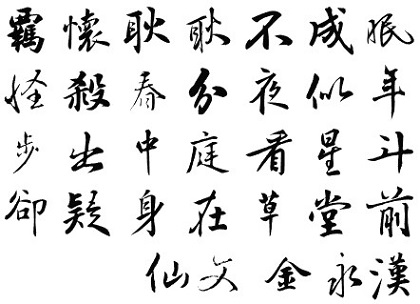 羈懷耿耿不成眠
怪殺春分夜似年
步出中庭看星斗
卻疑身在草堂前
仙文 金永漢